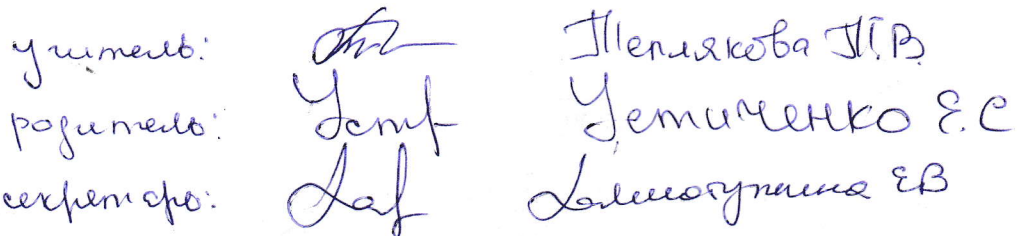 учитель: Теплякова Т.В.
родитель: Устиченко Е.С
секретарь: Е.В